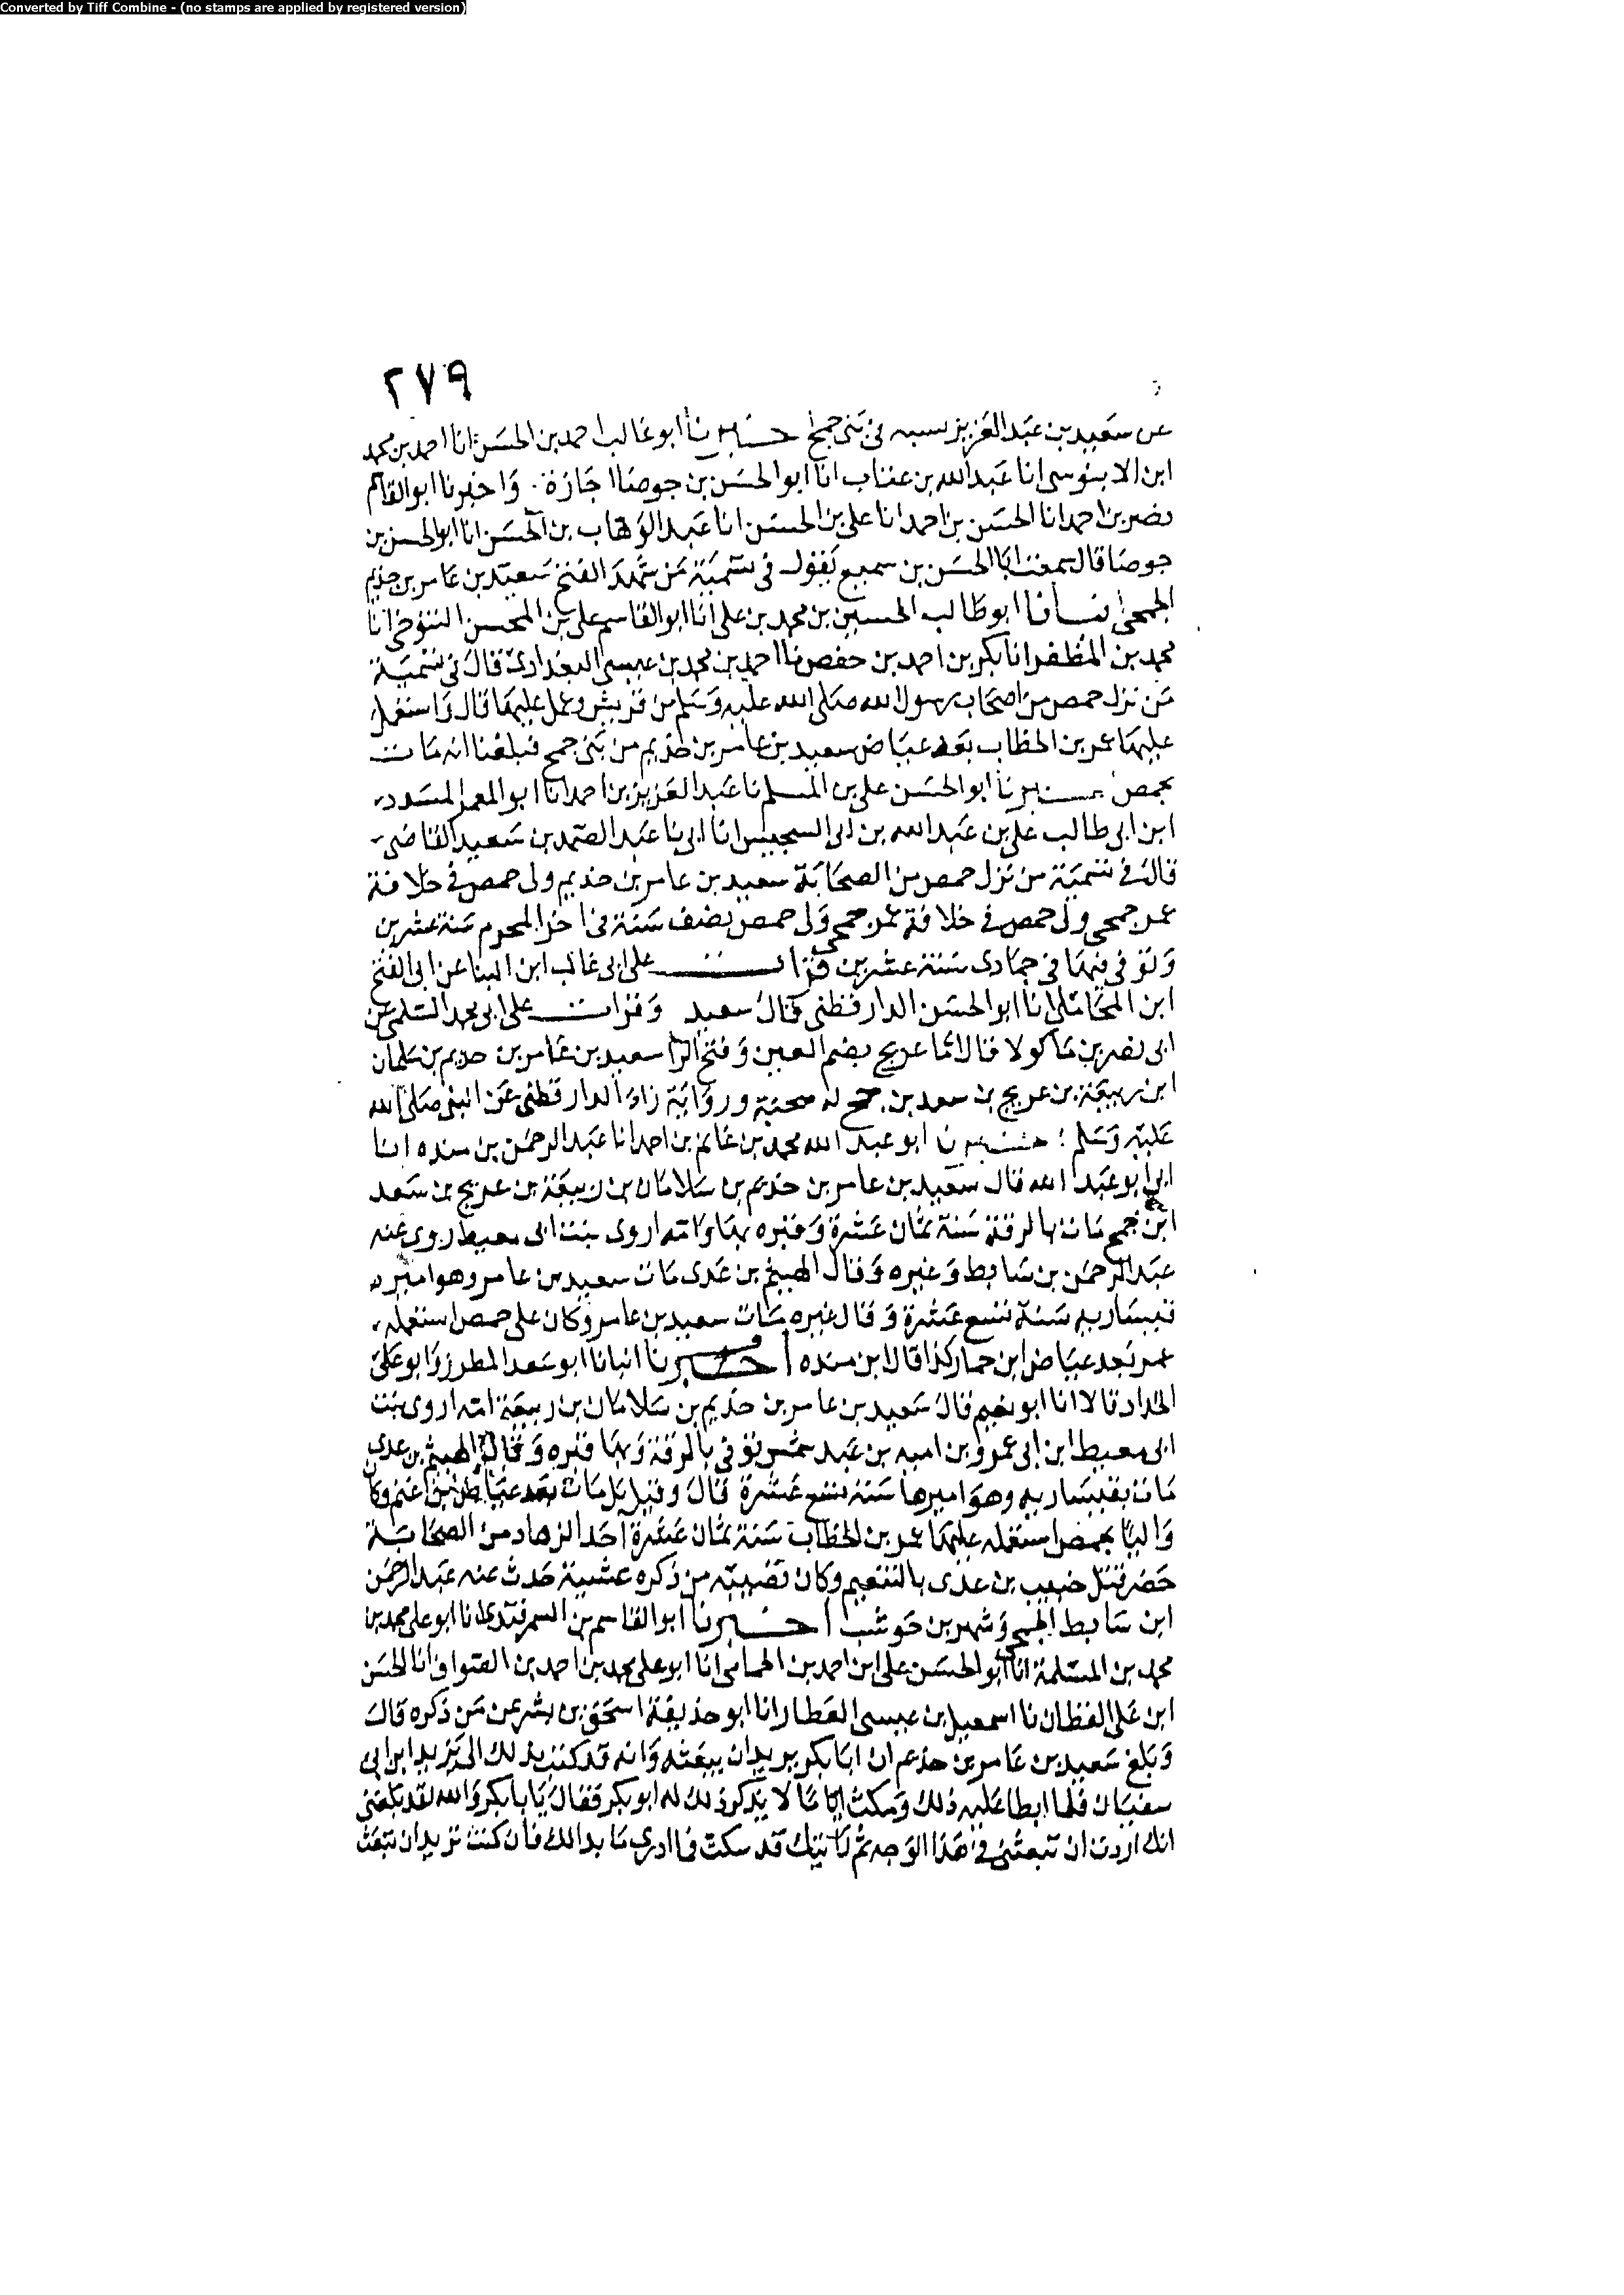 Converted by Tiff Combine - (no stamps are applied by registered version)
٢٧٩
عن سعيد بن عبد العزيز نسبه في بني جمح اخبرنا ابو غالب احمد بن الحسن انا احمد بن محمد
ابن الابنوسي انا عبد الله بن عتاب انا ابو الحسن بن جوصا اجازة . واخبرنا ابو القاسم
نصر بن احمد انا الحسن بن احمد انا علي بن الحسن انا عبد الوهاب بن الحسن انا ابو الحسن بن
جوصا قال سمعت ابا الحسن بن سميع يقول في تسمية من شهد الفتح سعيد بن عامر بن حذيم
الجمحي انبانا ابو طالب الحسين بن محمد بن علي انا ابو القاسم علي بن المحسن التنوخي انا
محمد بن المظفر انا بكر بن احمد بن حفص نا احمد بن محمد بن عيسى البغدادي قال في تسمية
من نزل حمص من اصحاب رسول الله صلى الله عليه وسلم من قريش وعمل عليها قال واستعمل
عليها عمر بن الخطاب بعد عياض سعيد بن عامر بن حذيم من بني جمح فبلغنا انه مات
بحمص اخبرنا ابو الحسن علي بن المسلم نا عبد العزيز بن احمد انا ابو المعمر المسدد
ابن ابي طالب علي بن عبد الله بن ابي السجيس انا ابي نا عبد الصمد بن سعيد القاضي
قال في تسمية من نزل حمص من الصحابة سعيد بن عامر بن حذيم ولي حمص في خلافة
عمر جمحي ولي حمص في خلافة عمر جمحي ولي حمص نصف سنة في اخر المحرم سنة عشرين
وتوفي فيها في جمادى سنة عشرين قرات على ابي غالب ابن البنا عن ابي الفتح
ابن المحاملي انا ابو الحسن الدارقطني قال سعيد وقرات على ابي محمد السلمي عن
ابي نصر بن ماكولا قال اما عريج بضم العين وفتح الرا سعيد بن عامر بن حذيم بن سلمان
ابن ربيعة بن عريج بن سعد بن جمح له صحبة ورواية زاد الدارقطني عن النبي صلى الله
عليه وسلم اخبرنا ابو عبد الله محمد بن غانم بن احمد انا عبد الرحمن بن منده انا
ابي ابو عبد الله قال سعيد بن عامر بن حذيم بن سلامان بن ربيعة بن عريج بن سعد
ابن جمح مات بالرقة سنة ثمان عشرة وقبره بها وامه اروى بنت ابي معيط روى عنه
عبد الرحمن بن سابط وغيره وقال الهيثم بن عدي مات سعيد بن عامر وهو امير
قيساريه سنة تسع عشرة وقال غيره مات سعيد بن عامر وكان على حمص استعمله
عمر بعد عياض ابن حمار كذا قال ابن منده اخبرنا انبانا ابو سعد المطرز وابو علي
الحداد قالا انا ابو نعيم قال سعيد بن عامر بن حذيم بن سلامان بن ربيعة امه اروى بنت
ابي معيط ابن ابي عمرو بن اميه بن عبد شمس توفي بالرقة وبها قبره وقال الهيثم بن عدي
مات بقيساريه وهو اميرها سنة تسع عشرة قال وقيل بل مات بعد عياض بن غنم وكان
واليا بحمص استعمله عليها عمر بن الخطاب سنة ثمان عشرة احد الزهاد من الصحابة
حضر قتل خبيب بن عدي بالتنعيم وكان تصيبه من ذكره غشية حدث عنه عبد الرحمن
ابن سابط الجمحي وشهر بن حوشب اخبرنا ابو القاسم بن السمرقندي انا ابو علي محمد بن
محمد بن المسلمة انا ابو الحسن علي ابن احمد بن الحمامي انا ابو علي محمد بن احمد بن الصواف انا الحسن
ابن علي القطان نا اسمعيل بن عيسى العطار انا ابو حذيفة اسحق بن بشر عن من ذكره قال
وبلغ سعيد بن عامر بن حذيم ان ابا بكر يريد ان يبعثه وانه قد كتب بذلك الى يزيد ابن ابي
سفيان فلما ابطا عليه ذلك ومكث اياما لا يذكر ذلك له ابو بكر فقال يا با بكر والله لقد بلغني
انك اردت ان تبعثني في هذا الوجه ثم رايتك قد سكت فما ادري ما بدا لك فان كنت تريد ان تبعث